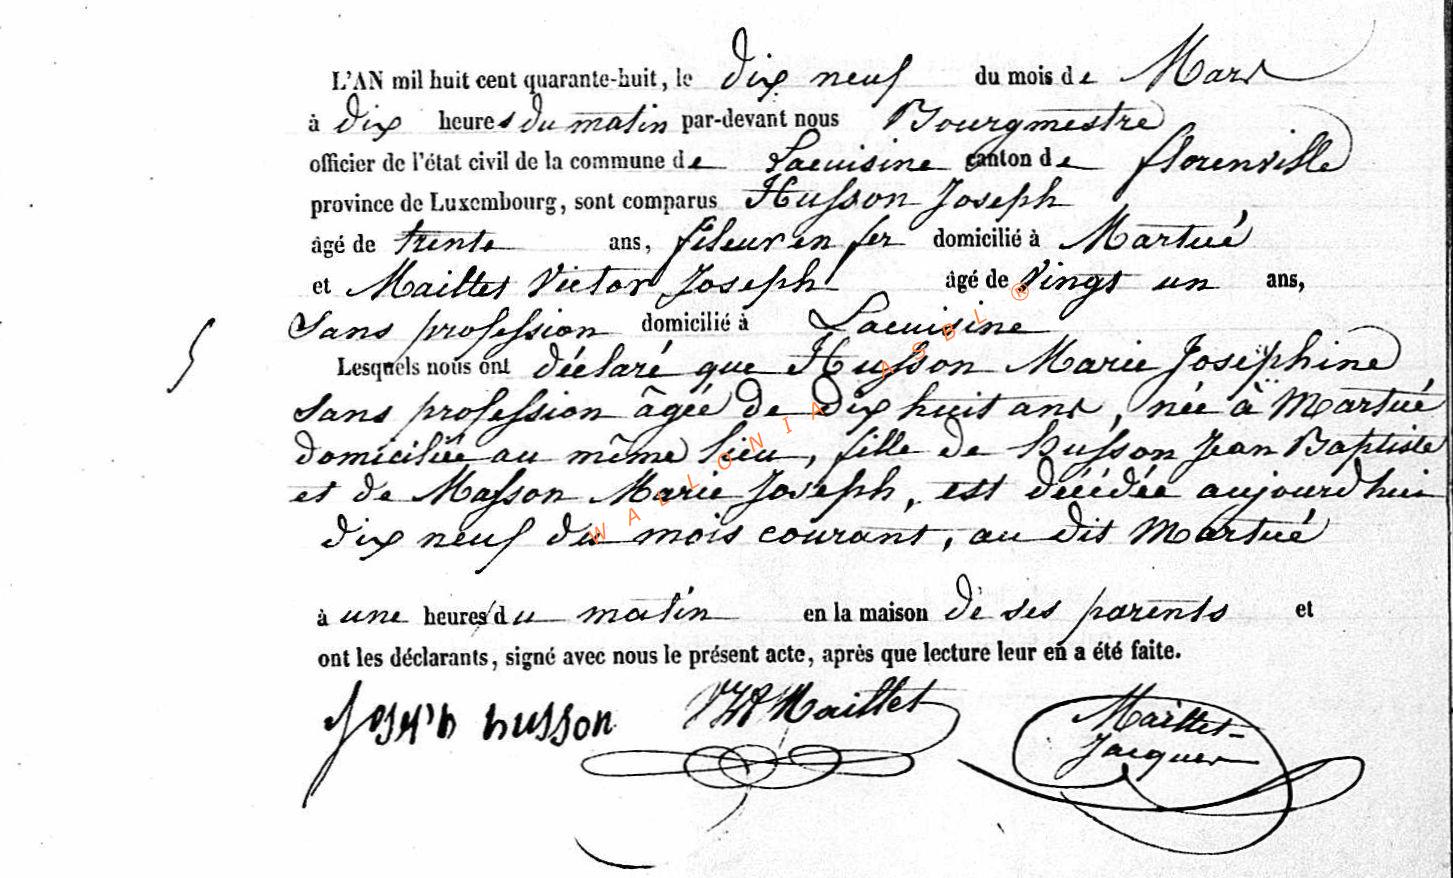 L'AN mil huit cent quarante-huit, le dix neuf du mois de Mars
à dix heures du matin par-devant nous Bourgmestre
officier de l'état civil de la commune de Lacuisine canton de florenville
province de Luxembourg, sont comparus Husson Joseph
âgé de trente ans, fileur en fer domicilié à Martué
et Maillet Victor Joseph âgé de Vingt un ans,
Sans profession domicilié à Lacuisine
Lesquels nous ont déclaré que Husson Marie Joséphine
Sans profession âgée de dix huit ans, née à Martué
domiciliée au même lieu, fille de husson Jean Baptiste
et de Masson Marie Joseph, est décédée aujourdhui
dix neuf du mois courant, au dit Martué
à une heures du matin en la maison de ses parents et
ont les déclarants, signé avec nous le présent acte, après que lecture leur en a été faite.
Joseph husson Maillet Maillet-
Jacques
WALLONIA ASBL ®